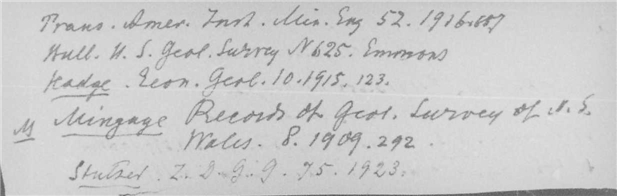 Trans. Amer. Inst. Min. Eng 52. 1916.607
Bull. U. S. Geol. Survey N 625. Emmons
Hodge. Econ. Geol. 10. 1915. 123.
M Mingaye Records of Geol. Survey of N. S.
Wales. 8. 1909. 292.
Stutzer. Z. D. G. G. 75. 1923.